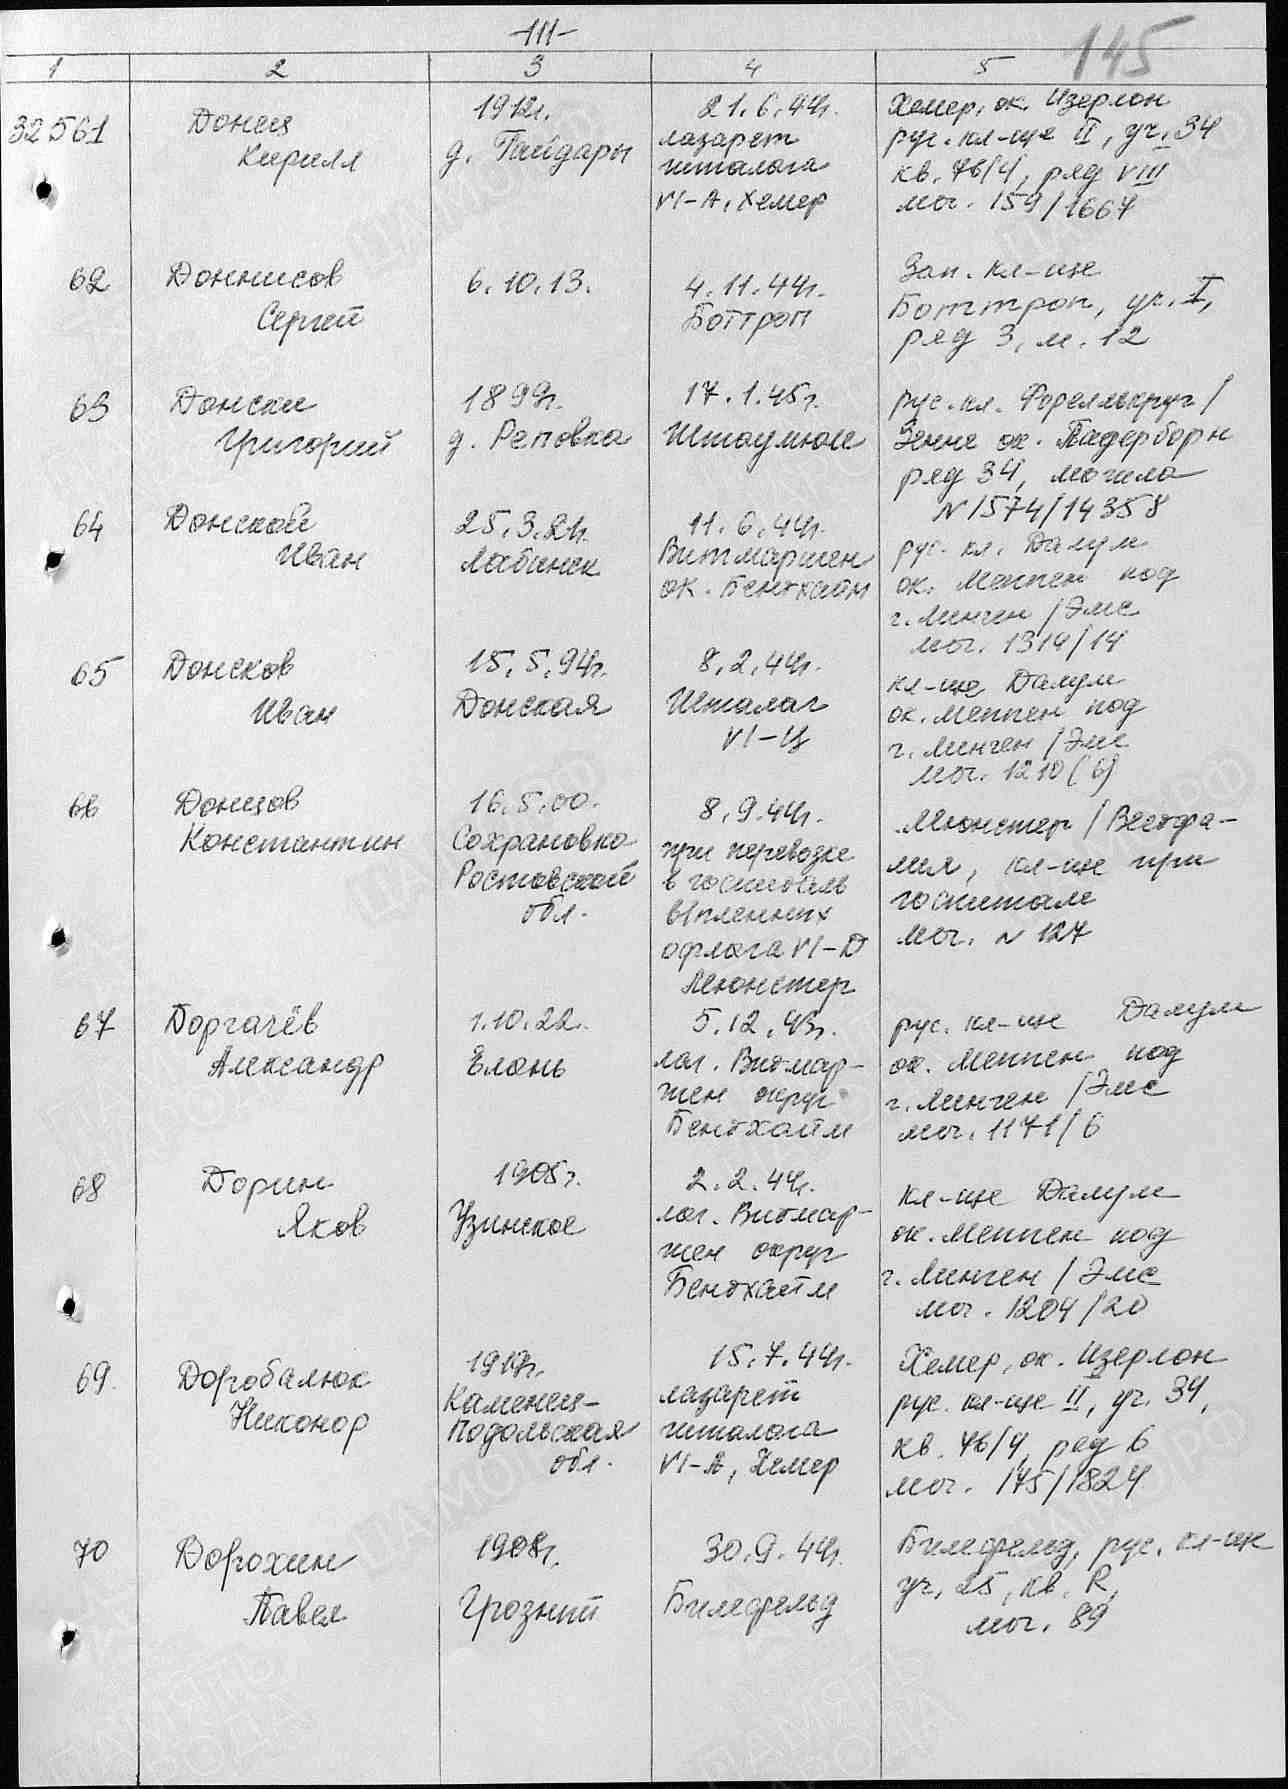 -111-
145
1 2 3 4 5
32561
Донец
Кирилл
1912г.
д. Гайдары
21.6.44г.
лазарет
шталага
VI-А, Хемер
Хемер, ок. Изерлон
рус. кл-ще II, уч. 34
кв. 7б/4, ряд VIII
мог. 159/1667
62
Доннисов
Сергей
6.10.13.
4.11.44г.
Боттроп
Зап. кл-ще
Боттроп, уч. I,
ряд 3, м. 12
63
Донски
Григорий
1899г.
д. Реповка
17.1.45г.
Штаумюле
рус. кл. Фореллькруг/
Зенне ок. Падерборн
ряд 34, могила
N 1574/14358
64
Донской
Иван
25.3.21г.
Лабинск
11.6.44г.
Витмаршен
ок. Бентхайм
рус. кл. Далум
ок. Меппен под
г. Линген/Эмс
мог. 1314/14
65
Донсков
Иван
15.5.94г.
Донская
8.2.44г.
Шталаг
VI-Ц
кл-ще Далум
ок. Меппен под
г. Линген/Эмс
мог. 1210 (6)
66
Донцов
Константин
16.5.00.
Сохрановка
Ростовской
обл.
8.9.44г.
при перевозке
в госпиталь
в/пленных
офлага VI-D
Мюнстер
Мюнстер/Вестфа-
лия, кл-ще при
госпитале
мог. N 127
67
Доргачёв
Александр
1.10.22.
Елань
5.12.43г.
лаг. Витмар-
шен округ
Бентхайм
рус. кл-ще Далум
ок. Меппен под
г. Линген/Эмс
мог. 1171/6
68
Дорин
Яков
1905г.
Узинское
2.2.44г.
лаг. Витмар-
шен округ
Бентхайм
кл-ще Далум
ок. Меппен под
г. Линген/Эмс
мог. 1204/20
69.
Доробалюк
Никонор
1917г.
Каменец-
Подольская
обл.
15.7.44г.
лазарет
шталага
VI-А, Хемер
Хемер, ок. Изерлон
рус. кл-ще II, уч. 34,
кв. 7б/4, ряд 6
мог. 175/1824
70
Дорохин
Павел
1908г.
Грозный
30.9.44г.
Билефельд
Билефельд, рус. кл-ще
уч. 25, кв. R,
мог. 89